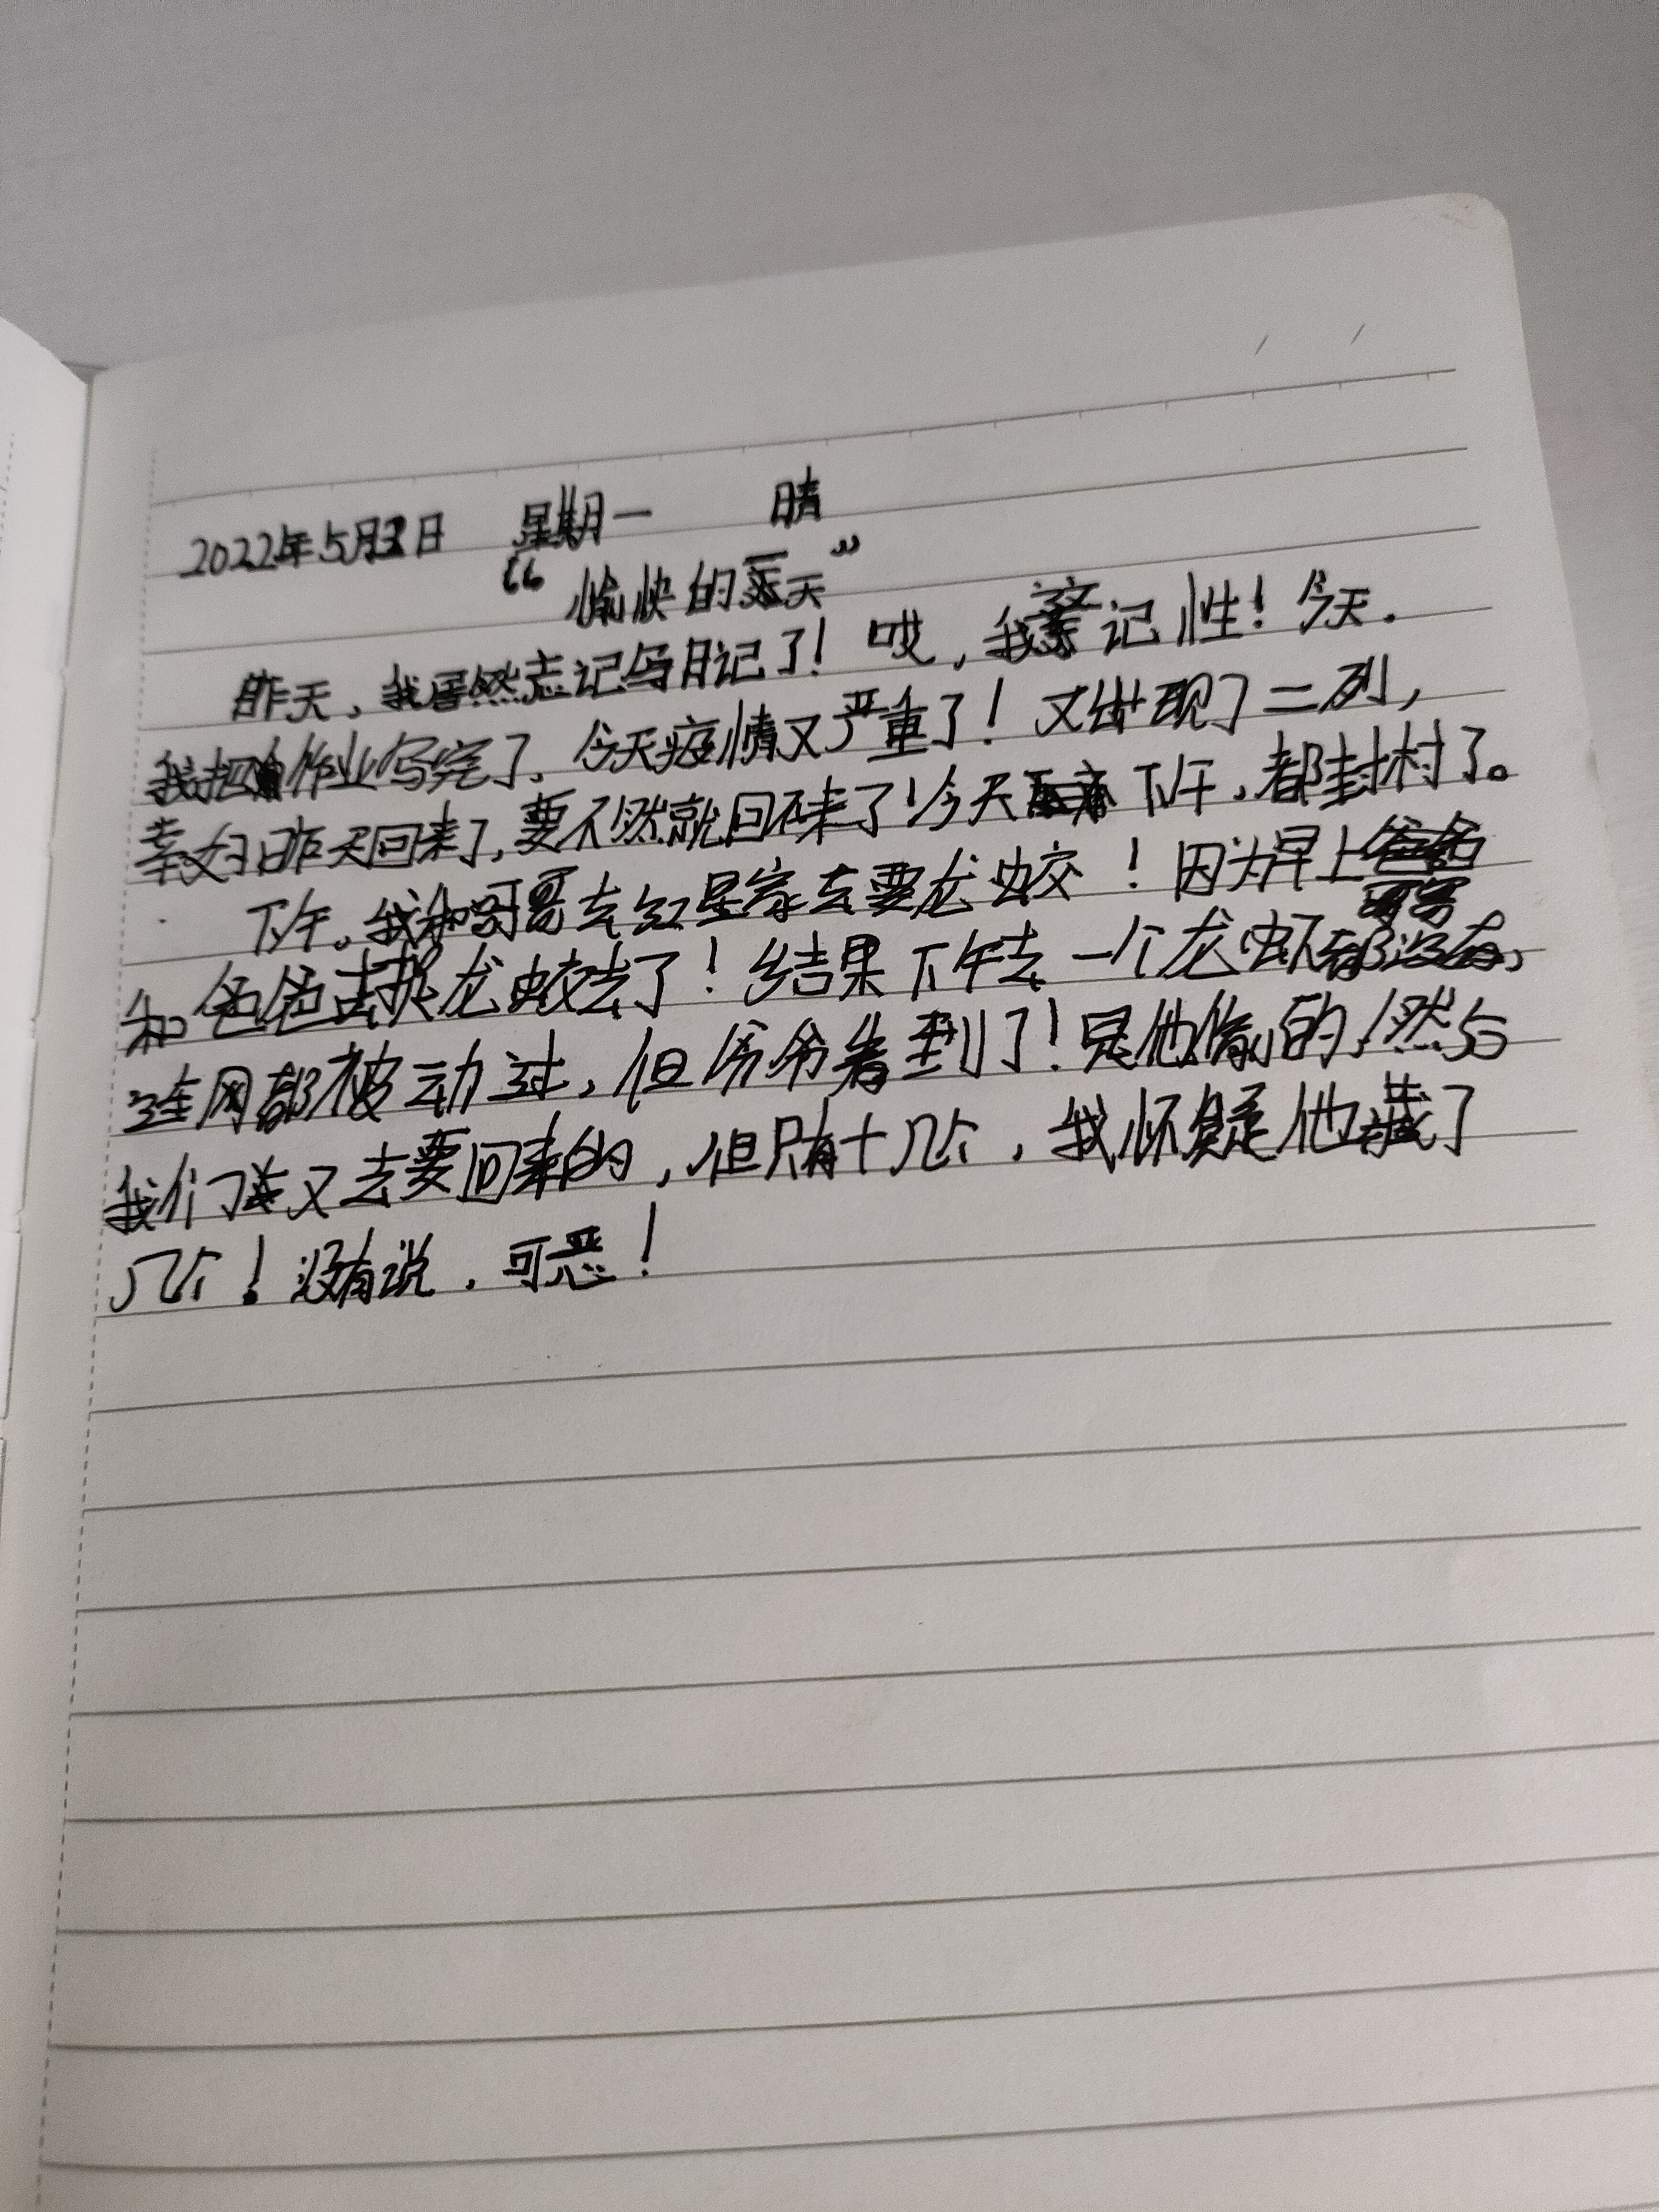 2022年5月2日 星期一 晴
“愉快的一天”
昨天，我居然忘记写日记了！哎，我这记性！今天.
我把作业写完了.今天疫情又严重了！又出现了二列，
幸好昨天回来了，要不然就回不来了！今天下午，都封村了。
下午。我和哥哥去红星家去要龙虫交！因为早上
和爸爸去抓龙虫交去了！结果下午去一个龙虾都没有，
连网都被动过，但爷爷看到了！是他偷的！然后
我们又去要回来的，但只有十几个，我怀疑他藏了
几个！没有说.可恶！